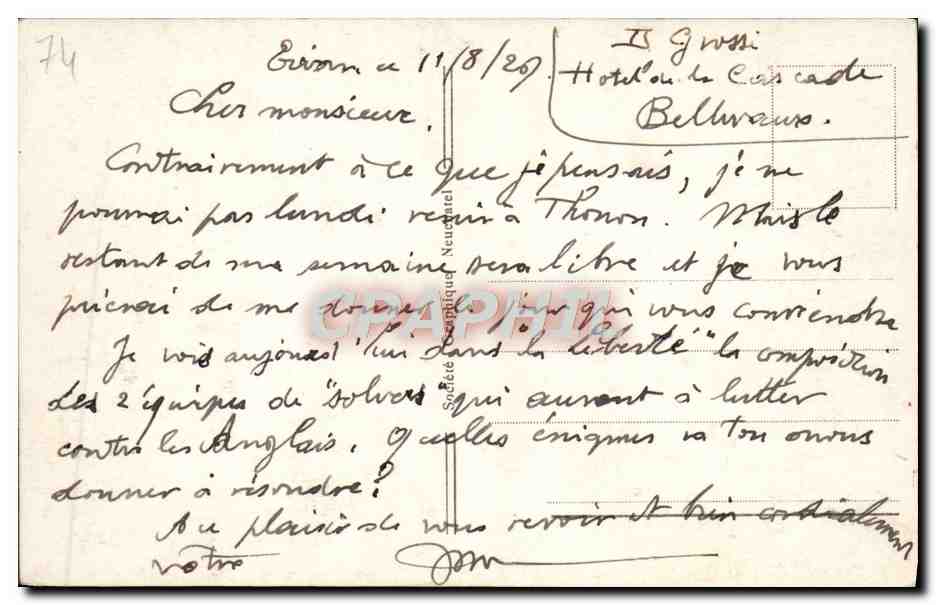 74
Evian ce 11/8/26
Grossi
Hotel de la Cascade
Bellevaux.
Cher monsieur,
Contrairement à ce que je pensais, je ne
pourrai pas lundi venir à Thonon. Mais le
restant de ma semaine sera libre et je vous
prierai de me donner le jour qui vous conviendra
Je vois aujourd'hui dans la "Liberté" la composition
des 2 équipes de "solvers" qui auront à lutter
contre les Anglais. Quelles énigmes va t'on nous
donner à résoudre?
Au plaisir de vous revoir et bien cordialement
votre
Société Graphique Neuchatel
CPAPHIL